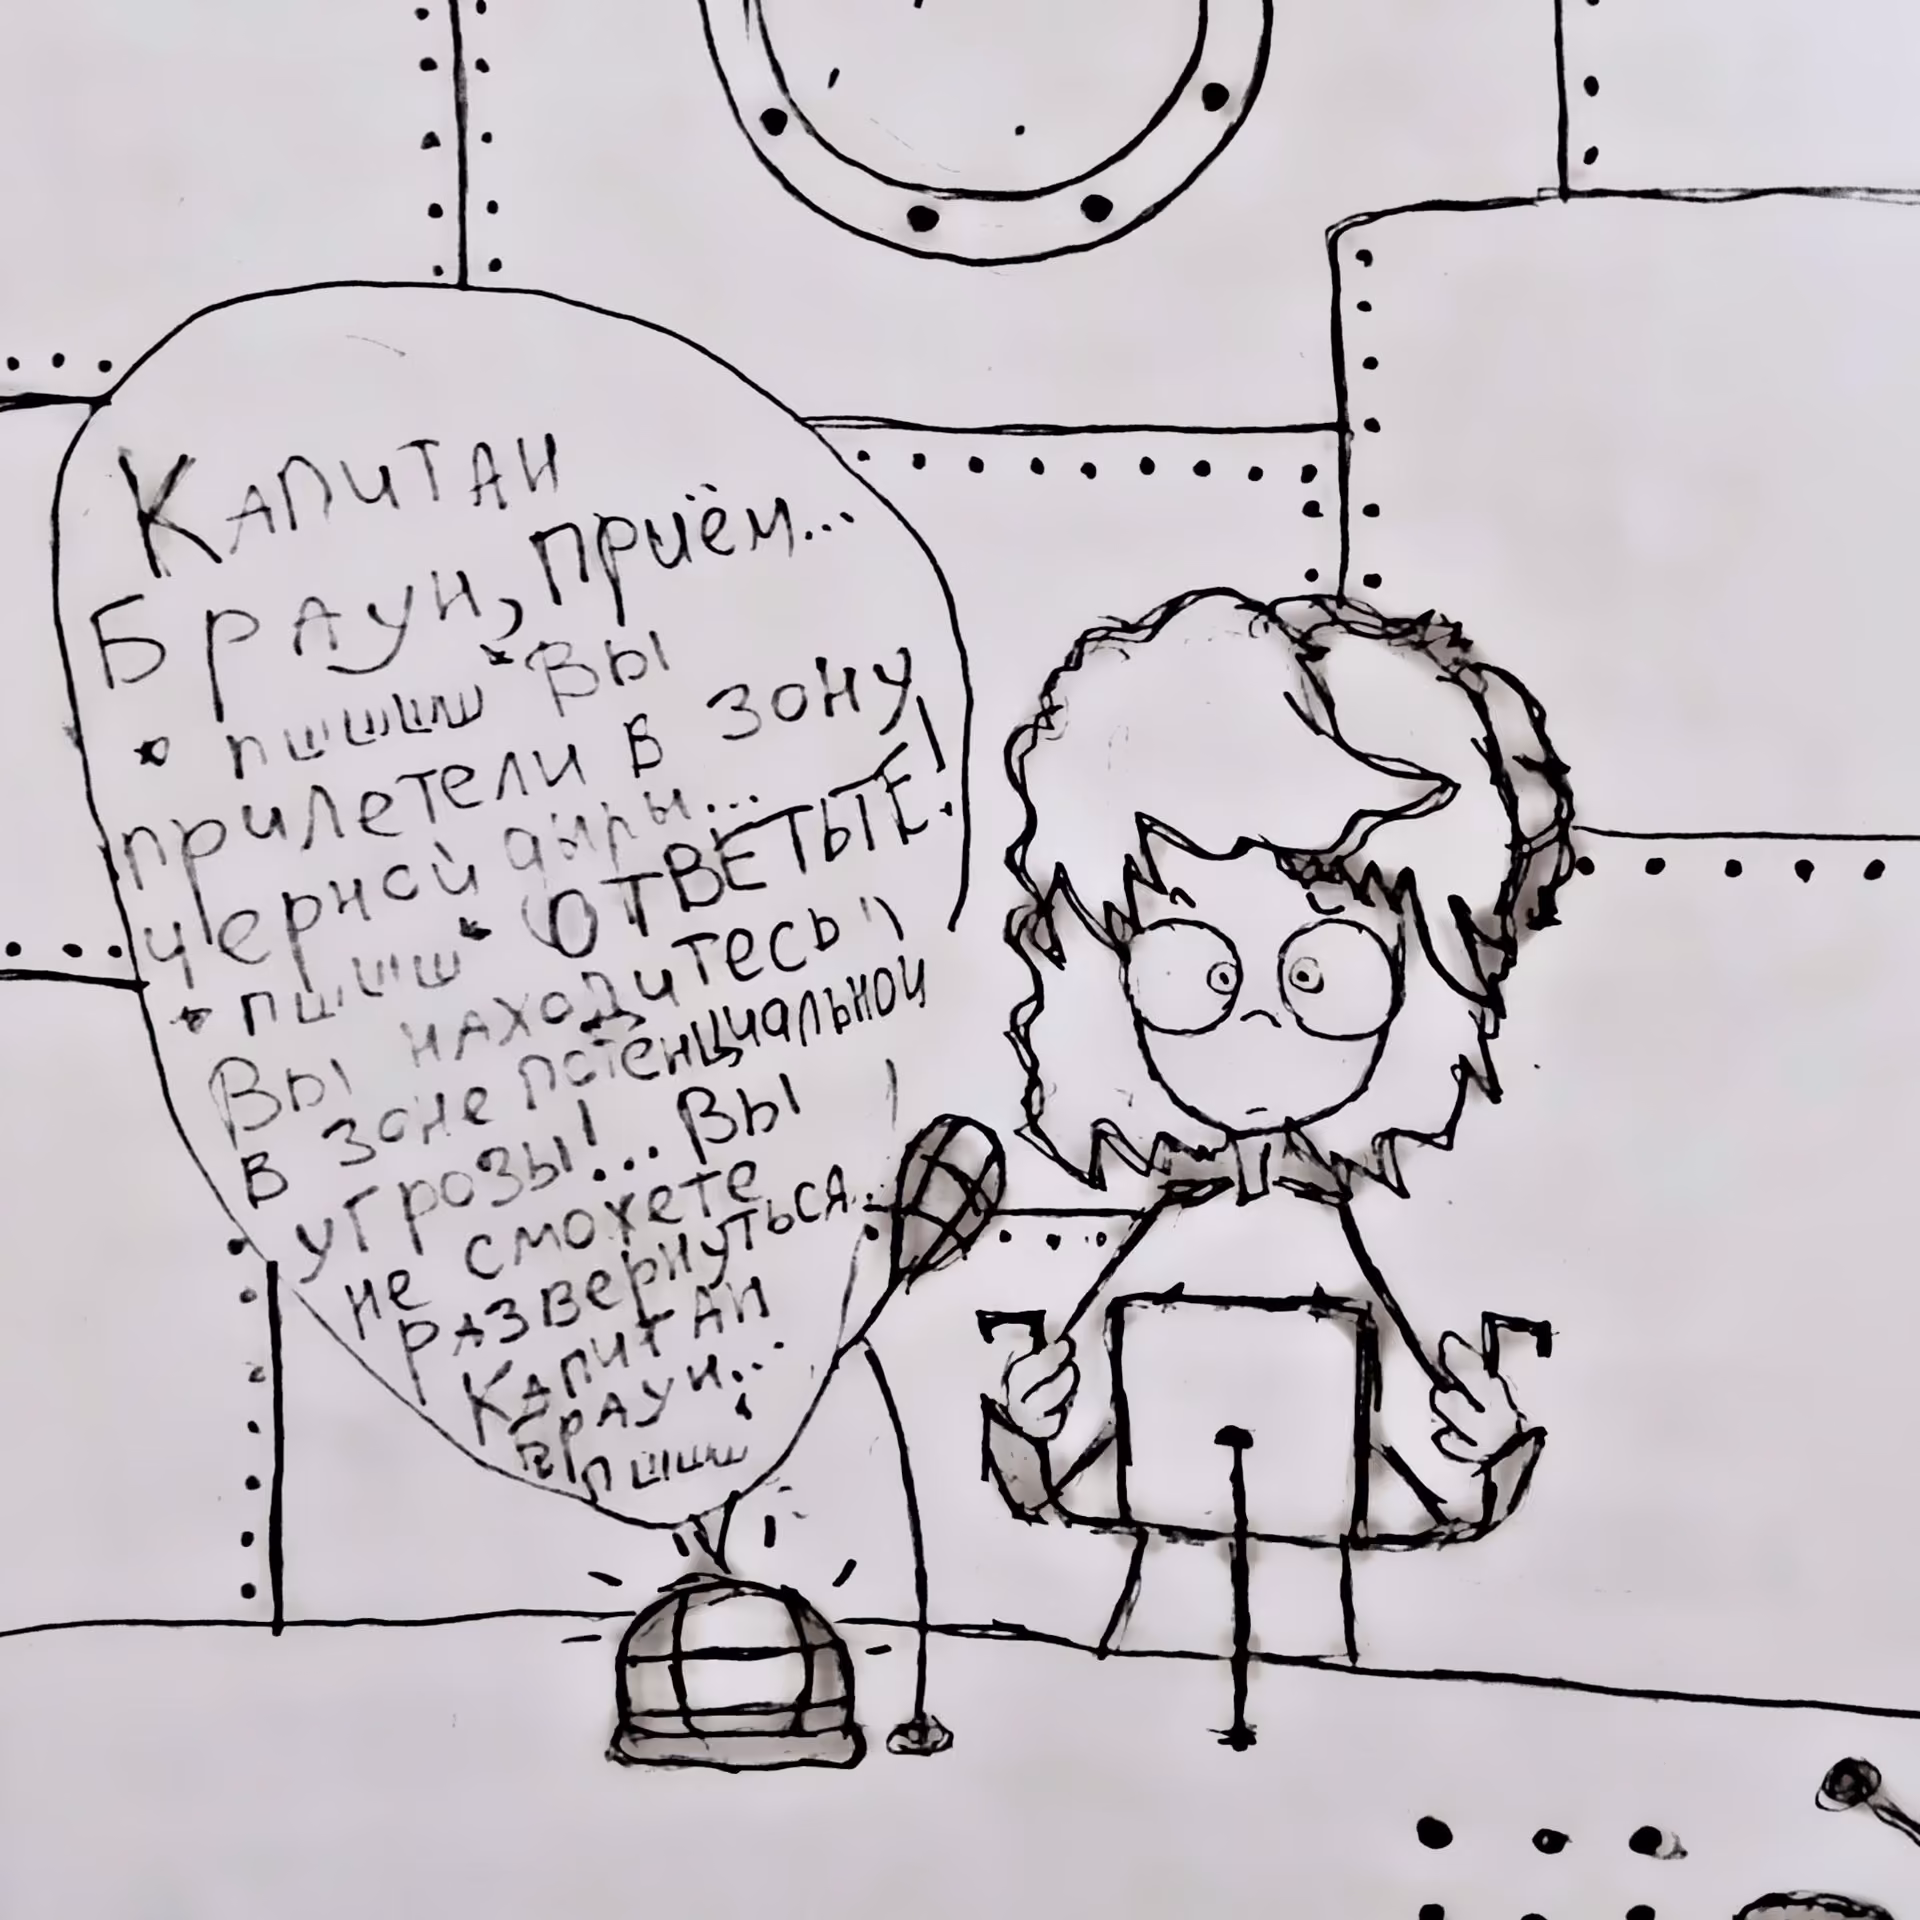 Капитан
Браун, приём...
*пшшшш* Вы
прилетели в зону
черной дыры...
*пшшш* ОТВЕТЬТЕ!
Вы находитесь
в зоне потенциальной
угрозы!... Вы
не сможете
развернуться...
Капитан
Браун...
пшшш